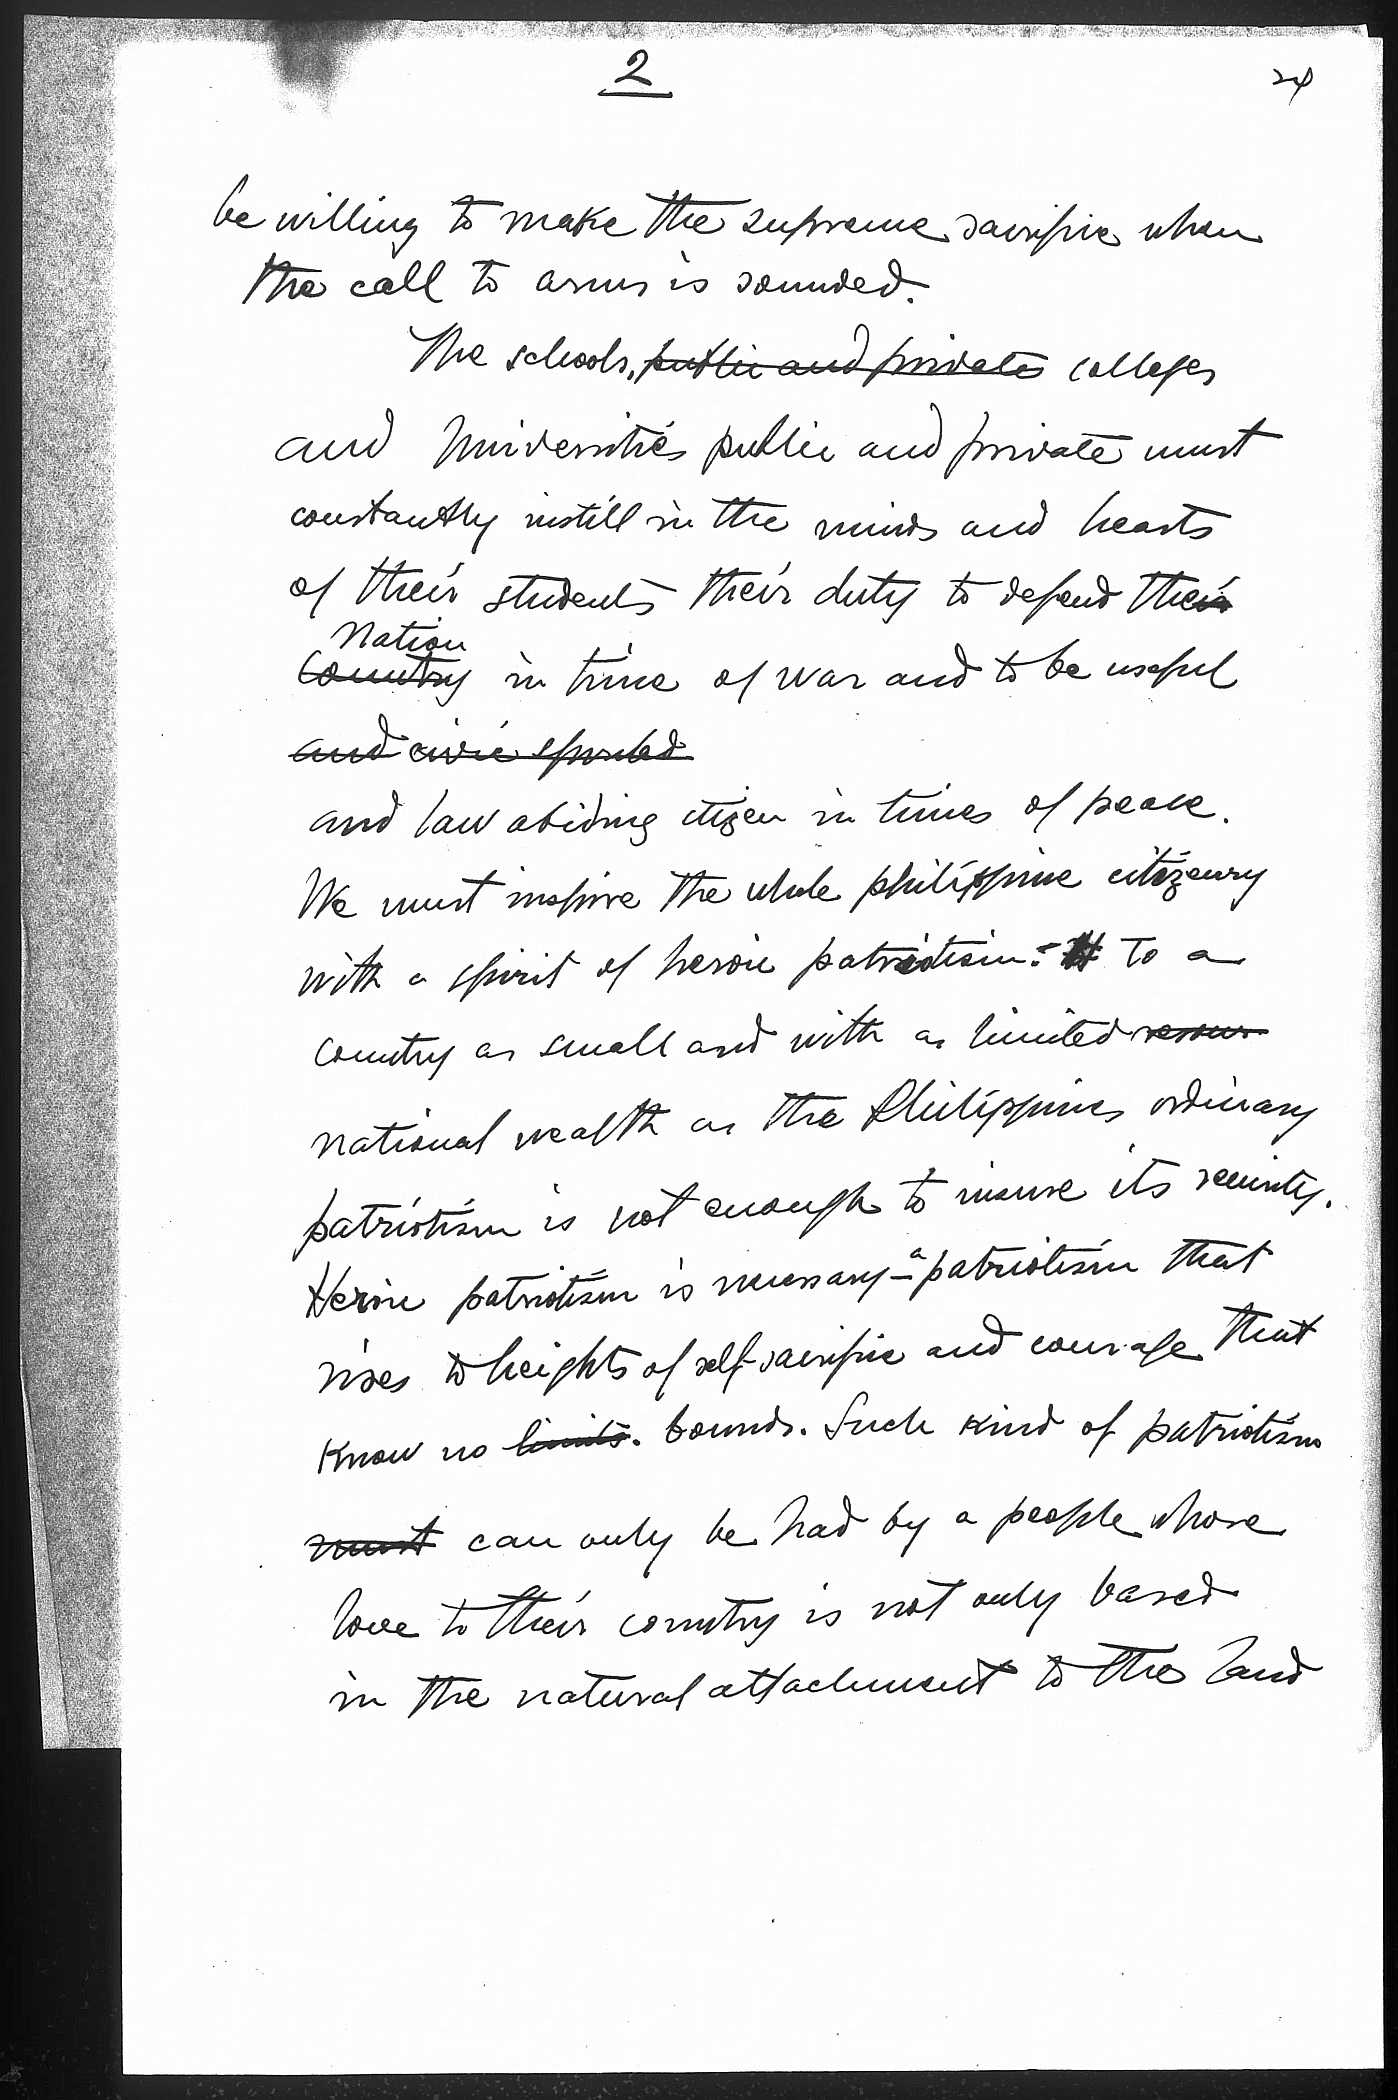 2
24
be willing to make the supreme sacrifice when
the call to arms is sounded.
The schools, public and private colleges
and Universities public and private must
constantly instill in the minds and hearts
of their students their duty to defend their
Nation
country in time of war and to be useful
and civic spirited
and law abiding citizen in times of peace.
We must inspire the whole philippine citizenry
with a spirit of heroic patriotism. To a
country as small and with as limited resour
national wealth as the Philippines ordinary
patriotism is not enough to insure its security.
Heroic patriotism is necessary – a patriotism that
rises to heights of self-sacrifice and courage that
know no limits. bounds. Such kind of patriotism
must can only be had by a people whose
love to their country is not only based
in the natural attachment to the land